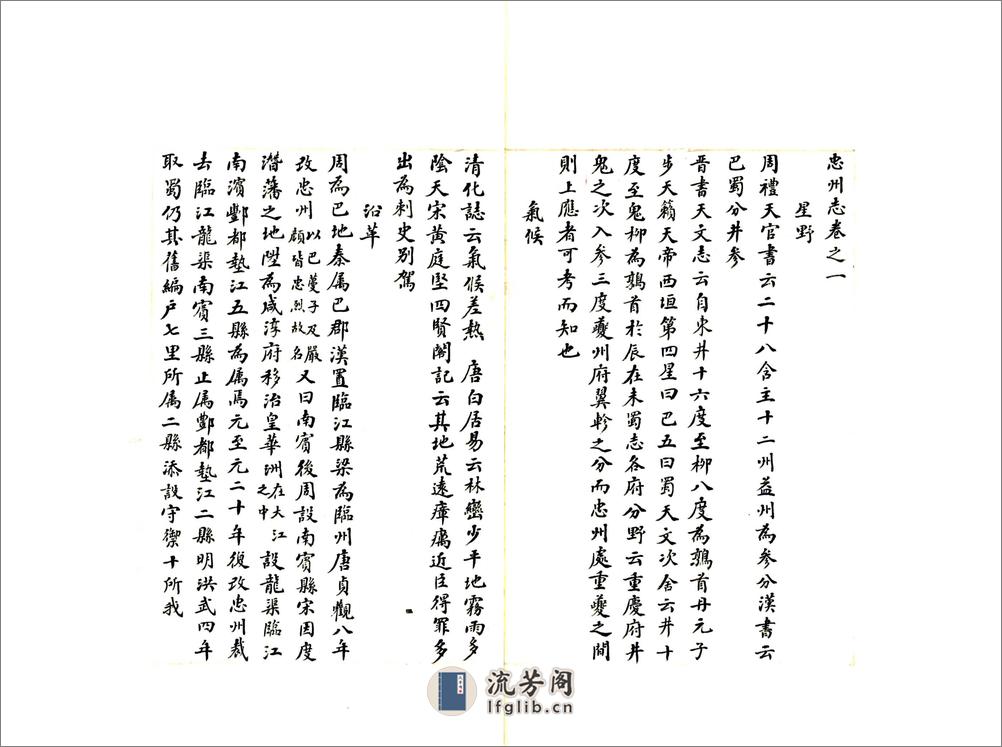 忠州志卷之一
星野
周禮天官書云二十八舍主十二州益州為參分漢書云
巴蜀分井參
晉書天文志云自東井十六度至柳八度為鶉首丹元子
步天籟天帝西垣第四星曰巴五曰蜀天文次舍云井十
度至鬼柳為鶉首於辰在未蜀志各府分野云重慶府井
鬼之次入參三度夔州府翼軫之分而忠州處重夔之間
則上應者可考而知也
氣候
清化誌云氣候差熱 唐白居易云林巒少平地霧雨多
陰天宋黃庭堅四賢閣記云其地荒遠瘴癘近臣得罪多
出為刺史別駕
沿革
周為巴地秦屬巴郡漢置臨江縣梁為臨州唐貞觀八年
改忠州以巴蔓子及嚴顏皆忠烈故名又曰南賓後周設南賓縣宋因度
潛藩之地陞為咸淳府移治皇華洲在大江之中設龍渠臨江
南濱酆都墊江五縣為屬焉元至元二十年復改忠州裁
去臨江龍渠南賓三縣止屬酆都墊江二縣明洪武四年
取蜀仍其舊編户七里所屬二縣添設守禦十所我
流芳阁
lfglib.cn